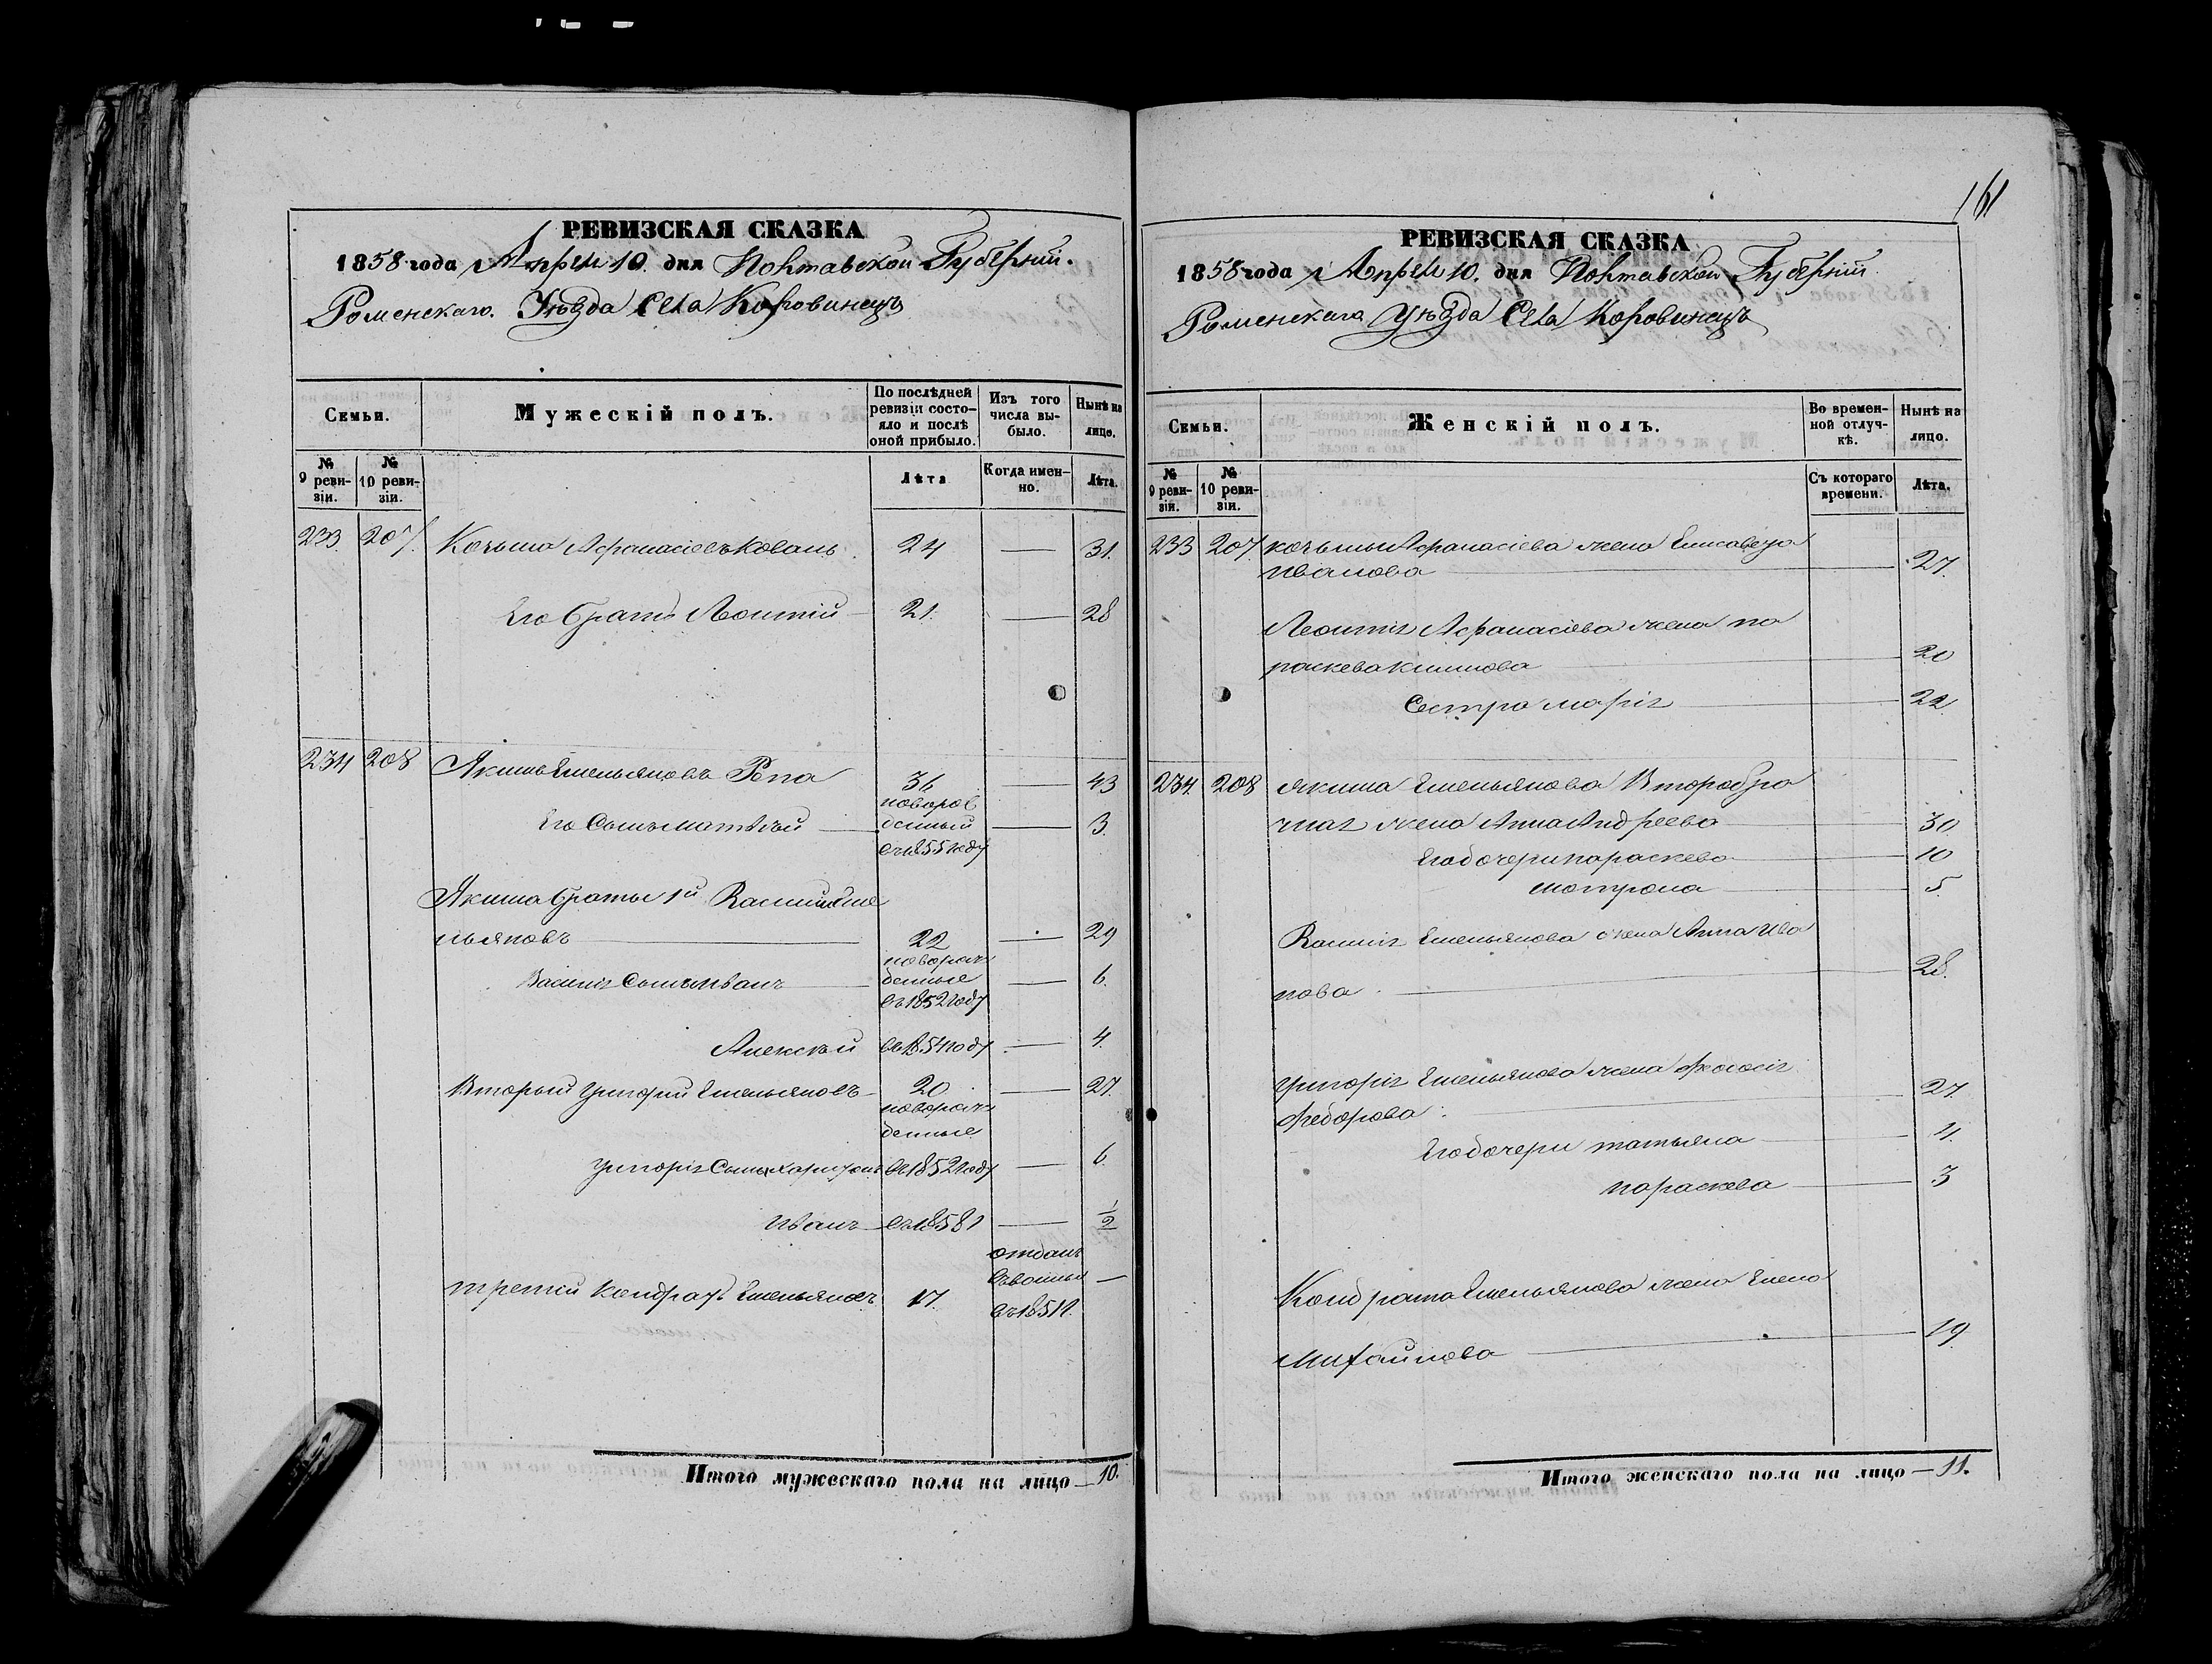 161
РЕВИЗСКАЯ СКАЗКА
1858 года Апреля 10. дня Полтавской Губерніи.
Роменскаго. Уѣзда Села Коровинецъ
Семьи.
Мужескій полъ.
По послѣдней ревизіи состо-
яло и послѣ
оной прибыло.
Изъ того
числа вы-
было.
Нынѣ на
лицо.
№
9 реви-
зіи.
№
10 реви-
зіи.
Лѣта
Когда имен-
но.
Лѣта.
233. 207. Козьма Афанасіевъ Коваль 24 — 31.
Его братъ Леонтій — 21. — 28
234 208 Якимъ Емельяновъ Репа 36 — 43
новорож
Его Сынъ Матвѣй — денный — 3.
въ 1855 году
Якима братья 1й Василій Еме
льяновъ — 22 — 29
новорож
Василія Сынъ Иванъ — денные — 6.
въ 1852 году
Алексѣй въ 1854 году — 4.
Вторый Григорій Емельяновъ 20 — 27.
новорож
денные
Григорія Сынъ Харитонъ въ 1852 году — 6.
Иванъ — въ 1858 г — 1/2
отданъ
третій Кондратъ Емельяновъ 17. —
въ 1851 г.
Итого мужескаго пола на лицо — 10.
РЕВИЗСКАЯ СКАЗКА
1858 года Апреля 10. дня Полтавской Губерніи
Роменскаго Уѣзда Села Коровинецъ
Семьи.
Женскій полъ.
Во времен-
ной отлуч-
кѣ.
Нынѣ на
лицо.
№
9 реви-
зіи.
№
10 реви-
зіи.
Съ котораго
времени.
Лѣта.
233 207 Козьмы Афанасіева жена Елисавета
Иванова — 27.
Леонтія Афанасіева жена Па
раскева Климова — 20
Сестра Марія — 22
234. 208 Якима Емельянова Второбра
чная жена Анна Андреева — 30
Его дочери Параскева — 10
Мотрона — 5
Василія Емельянова жена Анна Ива
нова — 28.
Григорія Емельянова жена Феодосія
Федорова — 27.
Его дочери Татьяна — 4.
Параскева — 3
Кондрата Емельянова жена Елена
Михайлова — 19.
Итого женскаго пола на лицо — 11.